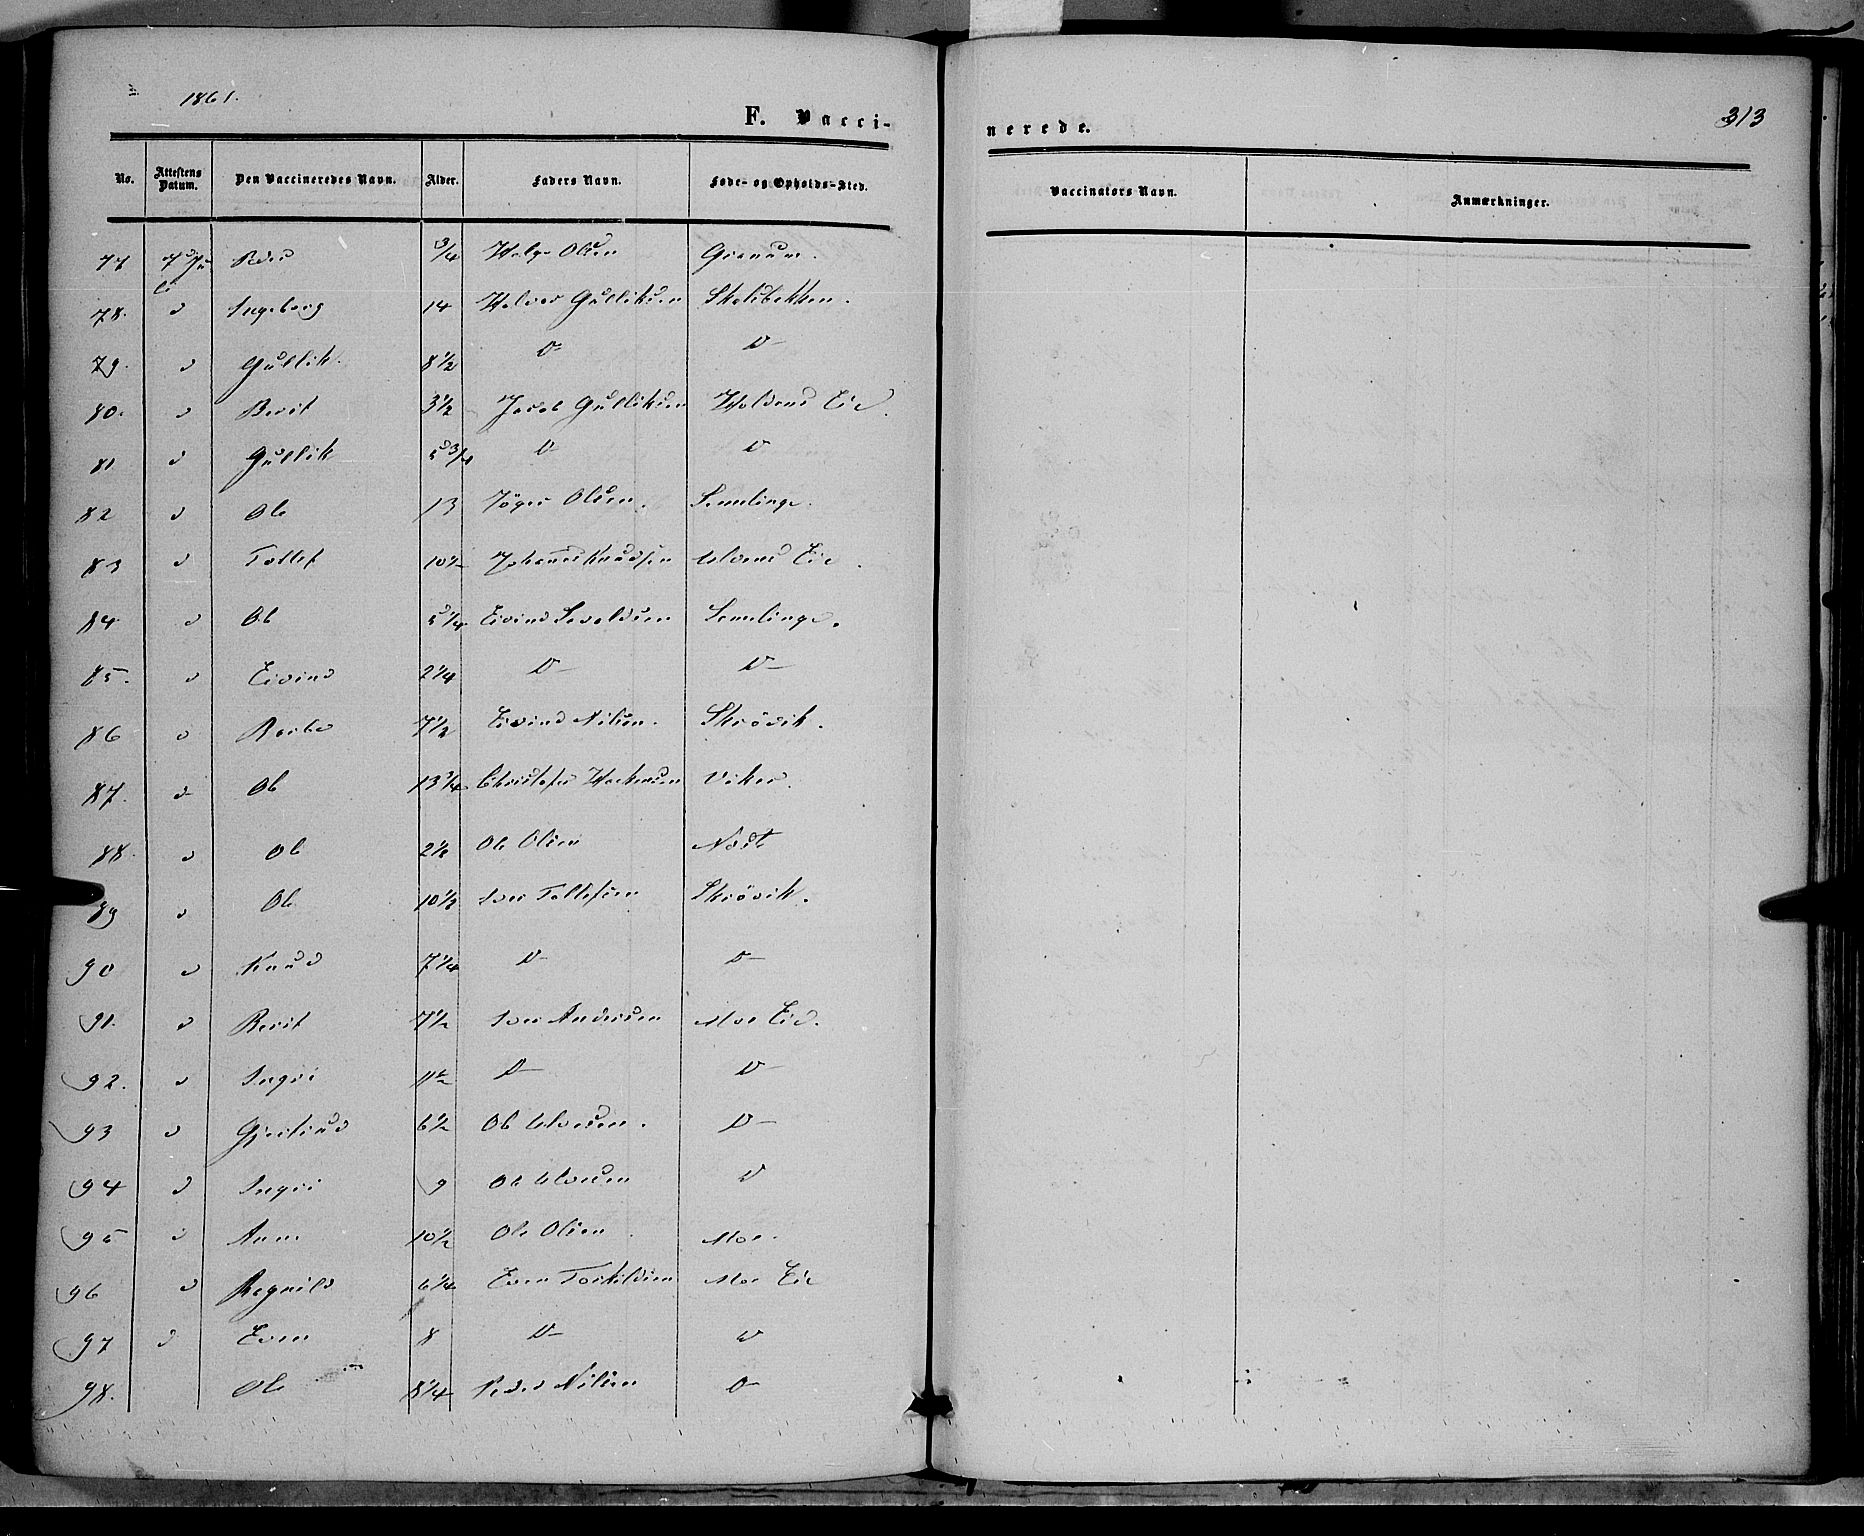 1861.
313
F. Vacci-
nerede.
No. Attestens Datum. Den Vaccineredes Navn. Alder. Faders Navn. Føde- og Opholds-Sted. Vaccinators Navn. Anmærkninger.
77 3/4 Helge Olsen
78. d Ingeborg 14 Halvor Gulliksen
79. d Gullik. 8 1/2 D- D-
80. d Berit 3 1/2 Jacob Gulliksen Eie.
81 d Gullik 5 3/4 D- D
82 d Ole 13 Olsen. Semlinge.
83 d Tollef 10 1/2 Johannes Knudsen Eie.
84 d Ole 5 1/4 Eivind Sevaldsen Semlinge.
85. d Eivind 2 1/4 D- D-
86 d 7 1/2 Eivind Nilsen. Skrövik.
87. d Ole 13 3/4 Christofer Viker.
88. d Ole Ole Olsen
89 d Ole 10 1/2 Iver Tollefsen Skrövik.
90 d Knud 7 1/4 D- D-
91. d Berit 7 1/2 Iver Andersen Moe Eie.
92. d Ingri D- D
93 d Gjertrud 6 1/2 Ole D-
94 d Ingri 9 Ole D
95 d Anne 10 1/2 Ole Olsen Moe.
96 d Ragnild 6 1/4 Even Torkildsen Moe Eie
97 d Even 8 D- D
98. Ole 8 1/4 Peder Nilsen D-